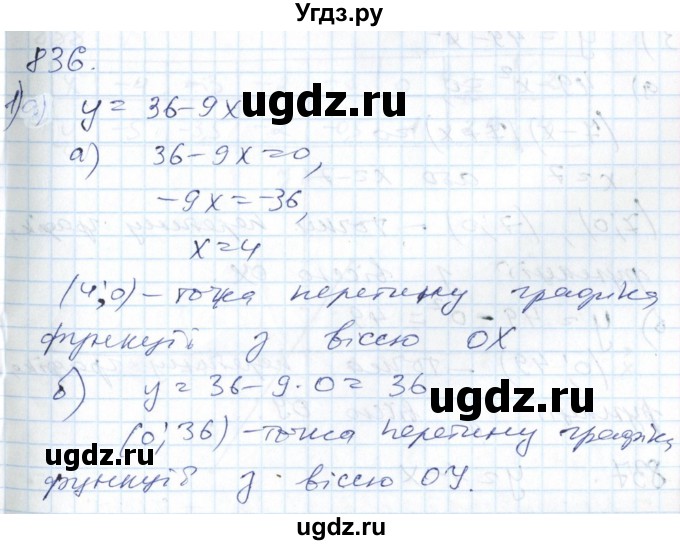 Угдз.ру
836.
1) а) y = 36 - 9x
ugdz.ru
а) 36 - 9x = 0,
-9x = -36,
x = 4
(4; 0) - точка перетину графіка
функції з віссю OX
б) y = 36 - 9 · 0 = 36
ugdz.ru
(0; 36) - точка перетину графіка
функції з віссю OY.
ugdz.ru
ugdz.ru